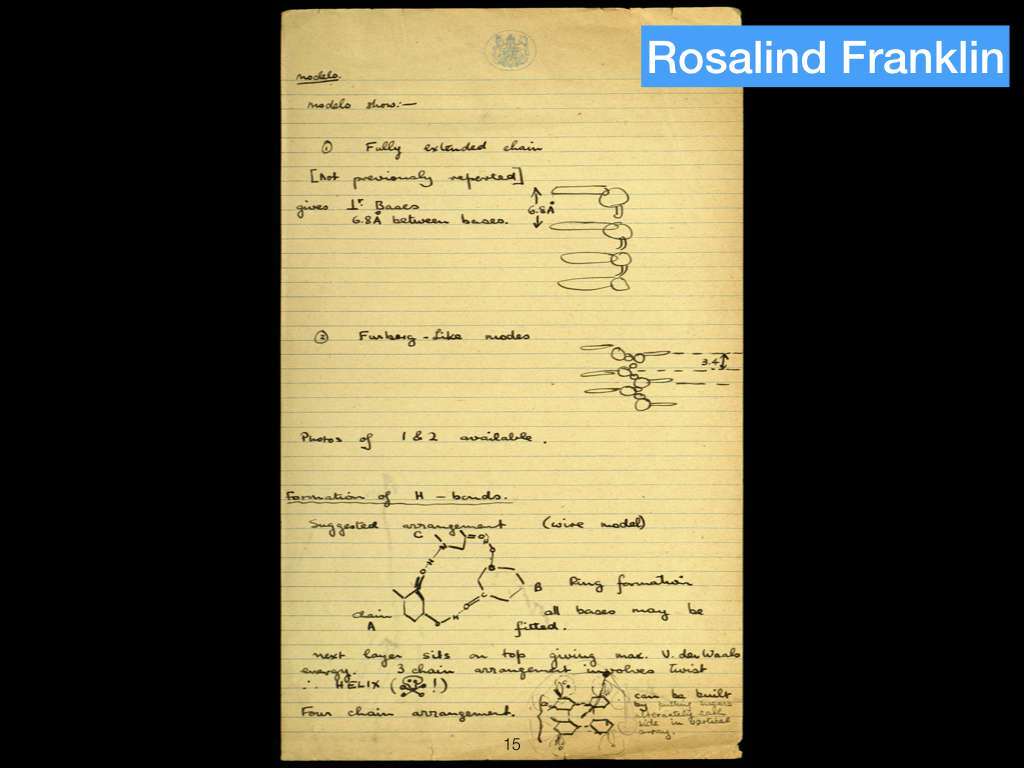 Rosalind Franklin
Models.
Models show:-
① Fully extended chain
[Not previously reported]
gives ⊥r Bases
6.8Å between bases.
6.8Å
② Furberg-like modes
3.4
Photos of 1 & 2 available.
Formation of H-bonds.
Suggested arrangement (wire model)
C
N
=O
H
O
H
O
B Ring formation
C
O
all bases may be
chain
A
O
H
fitted.
next layer sits on top giving max. V. der Waals
energy. 3 chain arrangement involves twist
∴ HELIX (☠!)
can be built
by putting sugars
alternately each
side in vertical
array.
Four chain arrangement.
15